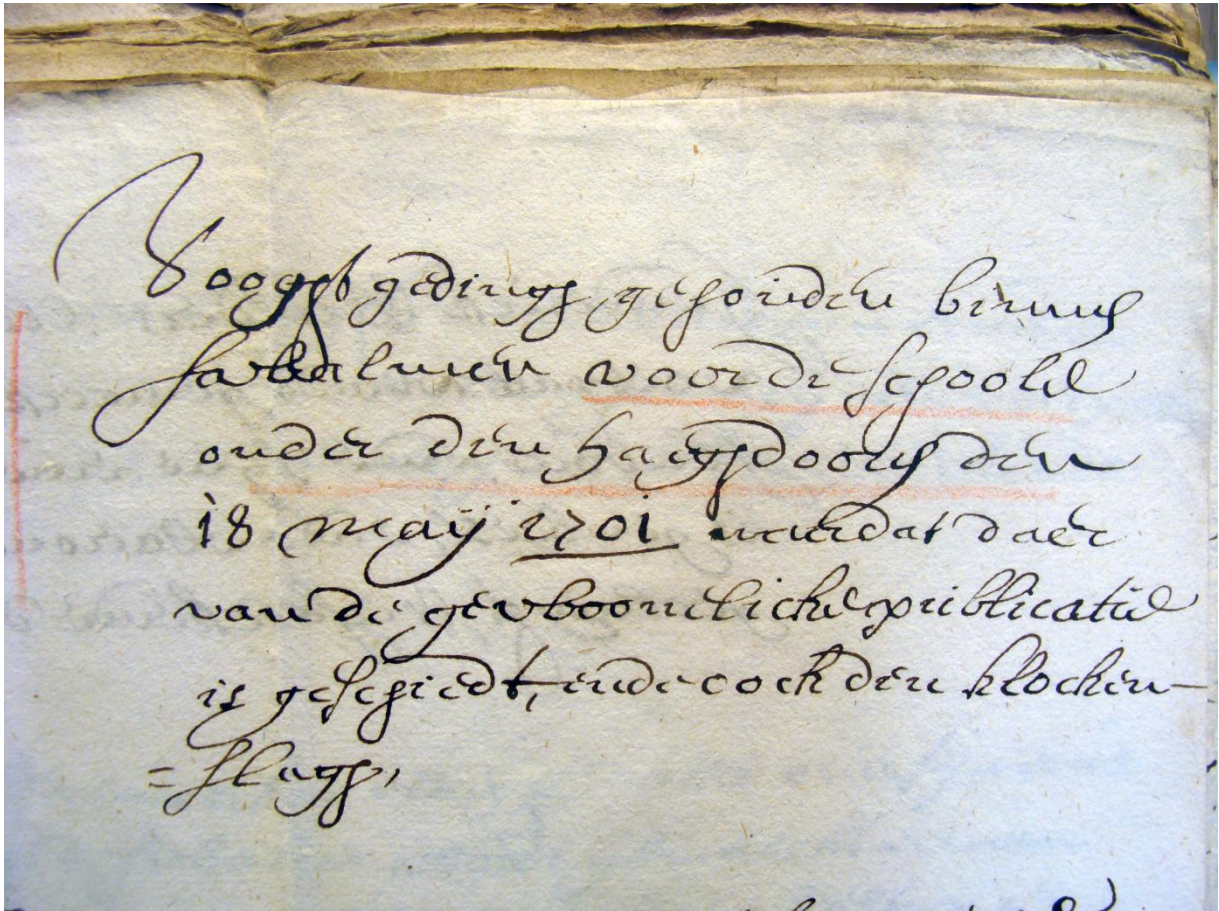 Vooght gedingh gehouden binnen
Swalmen voor de schoole
onder den haeghdoorn den
18 maÿ 1701 naerdat daer
van de gewoonelicke publicatie
is geschiedt, ende oock den klocken-
=slagh,